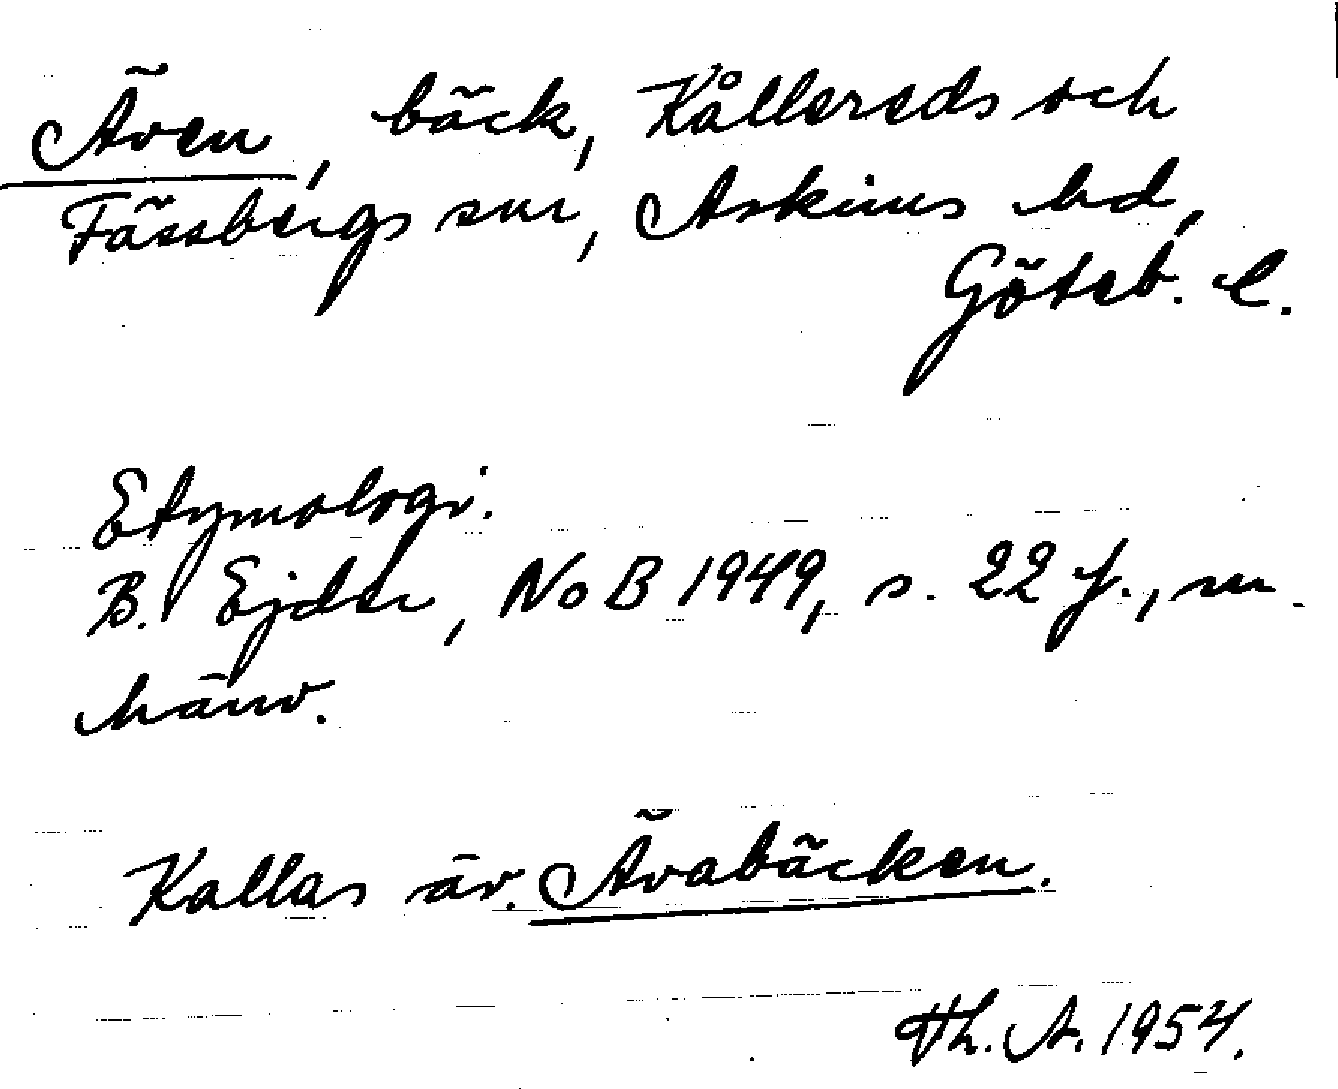 Även, bäck, Kållereds och
Fässbergs snr, Askims hd,
Göteb. l.
Etymologi.
B. Ejder, NoB 1949, s. 22 f., m.
hänv.
Kallas äv. Ävabäcken.
Th. A. 1954.